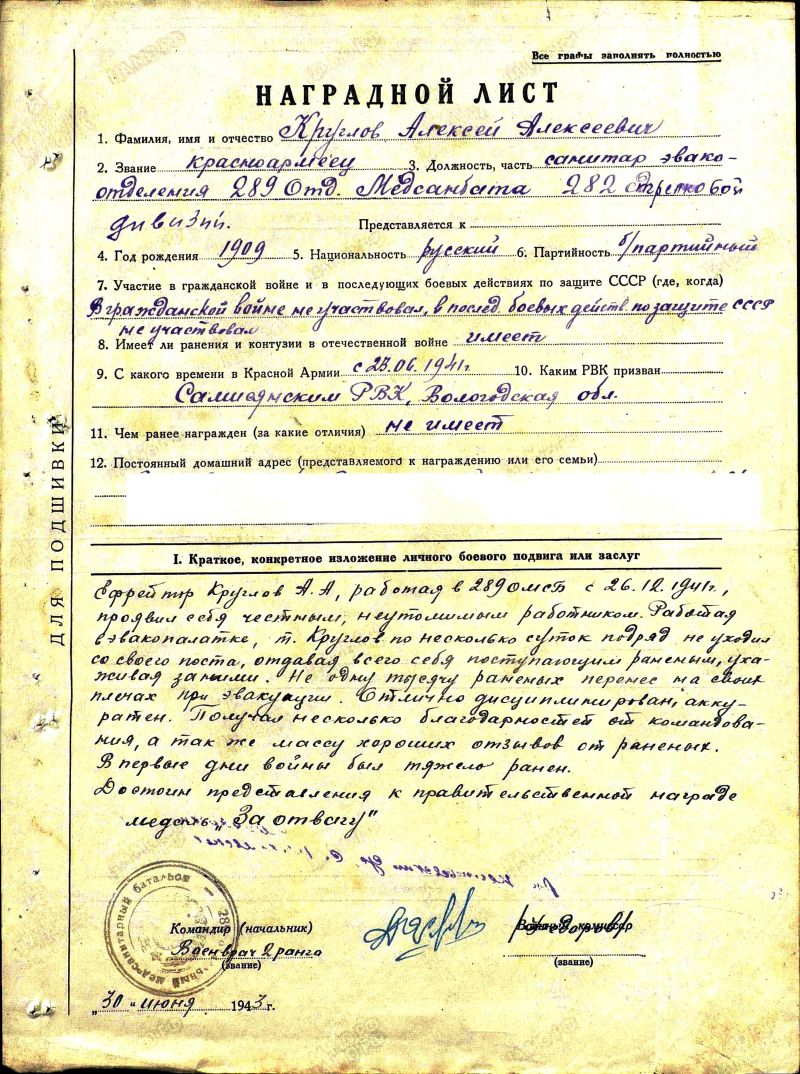 Все графы заполнять полностью
НАГРАДНОЙ ЛИСТ
1. Фамилия, имя и отчество Круглов Алексей Алексеевич
2. Звание красноармеец 3. Должность, часть санитар эвако-
отделения 289 Отд. Медсанбата 282 стрелковой
дивизии. Представляется к
4. Год рождения 1909 5. Национальность русский 6. Партийность б/партийный
7. Участие в гражданской войне и в последующих боевых действиях по защите СССР (где, когда)
В гражданской войне не участвовал, в послед. боевых действ. по защите СССР
не участвовал
8. Имеет ли ранения и контузии в отечественной войне имеет
9. С какого времени в Красной Армии с 23.06.1941г 10. Каким РВК призван
РВК, Вологодская обл.
11. Чем ранее награжден (за какие отличия) не имеет
12. Постоянный домашний адрес (представляемого к награждению или его семьи)
ДЛЯ ПОДШИВКИ
I. Краткое, конкретное изложение личного боевого подвига или заслуг
Ефрейтор Круглов А.А, работая в 289 ОМСБ с 26.12.1941г,
проявил себя честным, неутомимым работником. Работая
в эвакопалатке, т. Круглов по несколько суток подряд не уходил
со своего поста, отдавая всего себя поступающим раненым, уха-
живая за ними. Не одну тысячу раненых перенес на своих
плечах при эвакуации. Отлично дисциплинирован, акку-
ратен. Получал несколько благодарностей от командова-
ния, а так же массу хороших отзывов от раненых.
В первые дни войны был тяжело ранен.
Достоин представления к правительственной награде
медаль "За отвагу"
медсанитарный батальон
Командир (начальник)
Военврач 2 ранга
(звание)
Военный комиссар
/Федоров/
(звание)
"30" июня 1943 г.